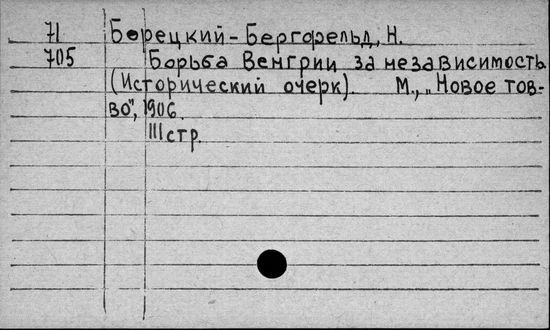 71 Борецкий-Бергфельд, Н.
705 Борьба Венгрии за независимость
(Исторический очерк). М., „Новое тов-
во", 1906.
111стр.